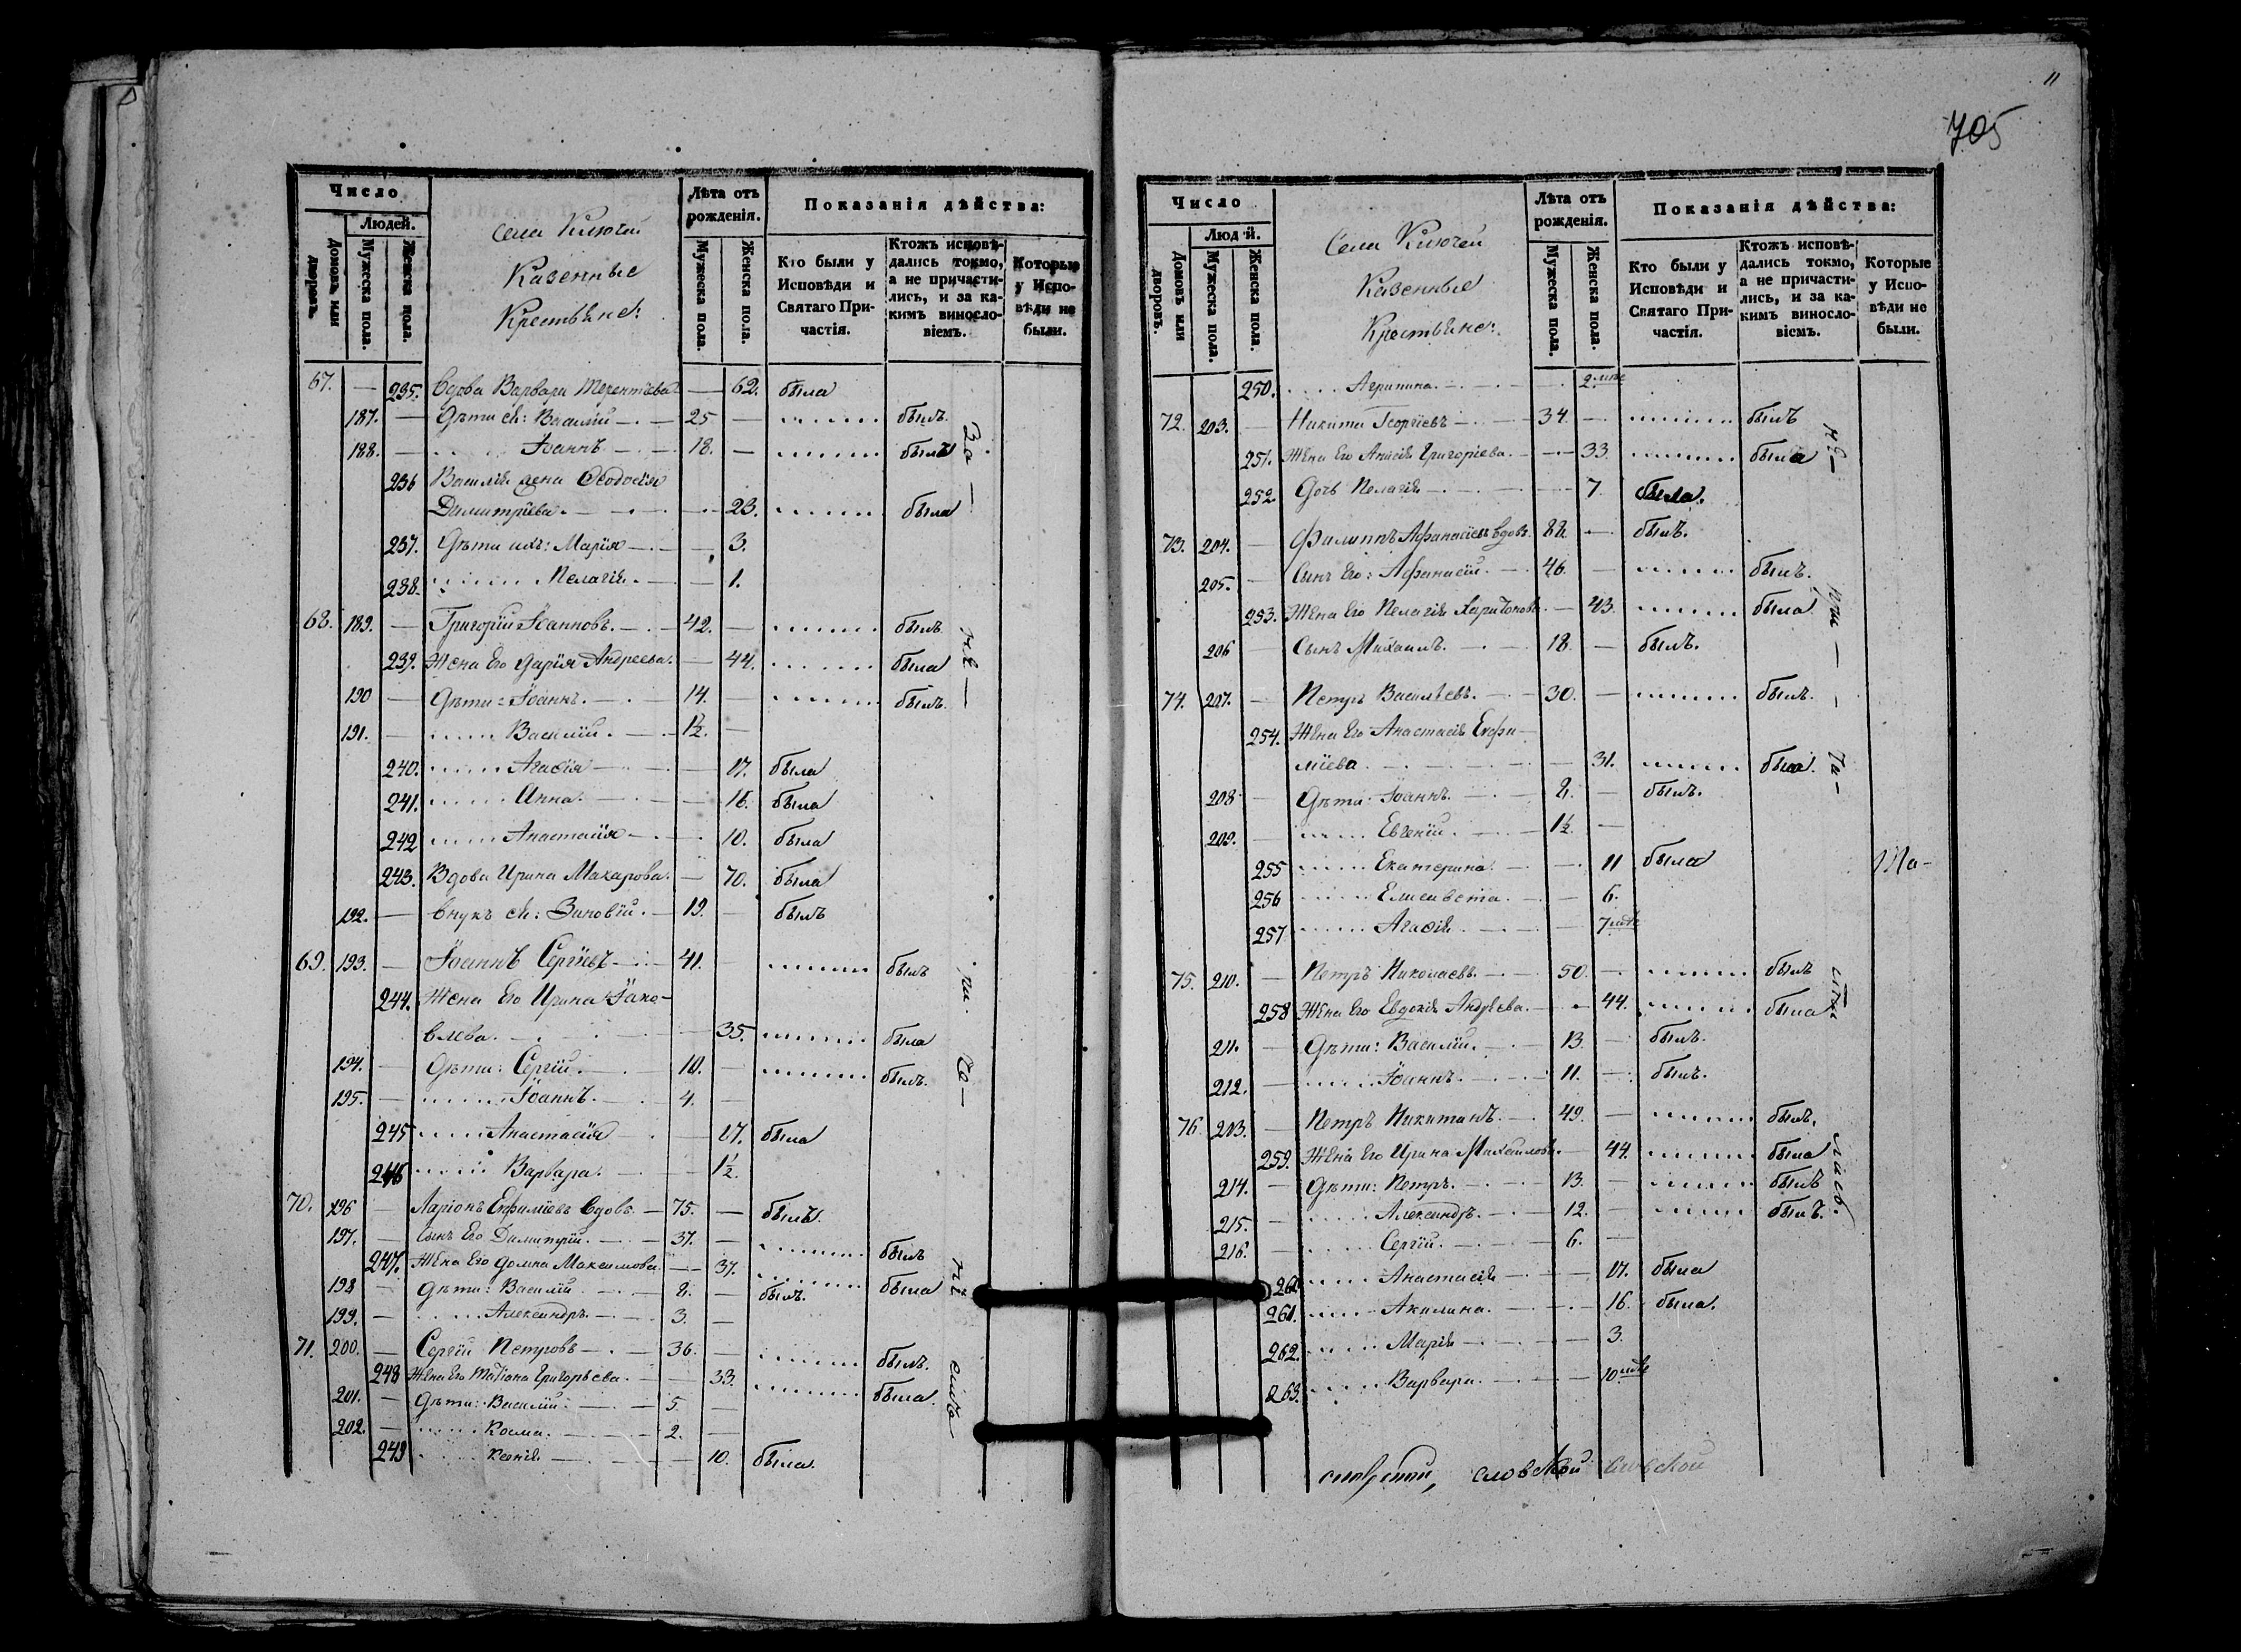 Число
Людей.
Домовъ или дворовъ.
Мужеска пола.
Женска пола.
Села Ключей
Казенные
Крестьяне:
Лѣта отъ рожденія.
Мужеска пола.
Женска пола.
Показанія дѣйства:
Кто были у Исповѣди и Святаго Причастія.
Ктожъ исповѣдались токмо, а не причастились, и за какимъ винословіемъ.
Которые у Исповѣди не были.
67. — 235. Вдова Варвара Терентьева — 62. была
187. — Дѣти ея: Василій — 25 — былъ.
188. — Іоаннъ — 18. — былъ
236 Василія жена Ѳеодосія
Димитріева. — 23. была
237. Дѣти ихъ: Марія — 3.
238. Пелагія. — 1.
68. 189. — Григорій Іоанновъ. — 42. — былъ
239. Жена Его Дарія Андреева. — 44. была
190 — Дѣти: Іоаннъ. — 14. — былъ.
191. — Василій. — 1½. —
240. Агаѳія — 17. была
241. Анна. — 16. была
242 Анастасія — 10. была
243. Вдова Ирина Макарова. — 70. была
192. — Внукъ ея: Зиновій. — 19. — былъ
69. 193. — Іоаннъ Сергіевъ — 41. — былъ
244. Жена Его Ирина Іако-
влева. — 35. была
194. — Дѣти: Сергій. — 10. — былъ.
195. — Іоаннъ. — 4. —
245 Анастасія — 17. была
246 Варвара. — 1½.
70. 196 — Ларіонъ Евфиміевъ вдовъ. — 75. — былъ.
197. — Сынъ Его Димитрій. — 37. — былъ
247. Жена Его Домна Максимова. — 37. была
198 — Дѣти: Василій — 8. — былъ.
199. — Александръ. — 3. —
71. 200. — Сергій Петровъ — 36. — былъ.
248 Жена Его Татіана Григорьева. — 33. была.
201. — Дѣти: Василій. — 5. —
202. — Косма. — 2. —
249 Ксенія — 10. была.
За —
не —
при.
ча —
11
705
Число
Людей.
Домовъ или дворовъ.
Мужеска пола.
Женска пола.
Села Ключей
Казенные
Крестьяне:
Лѣта отъ рожденія.
Мужеска пола.
Женска пола.
Показанія дѣйства:
Кто были у Исповѣди и Святаго Причастія.
Ктожъ исповѣдались токмо, а не причастились, и за какимъ винословіемъ.
Которые у Исповѣди не были.
250. Агрипина. — 2.
72. 203. — Никита Георгіевъ — 34. — былъ
251. Жена Его Анисія Григоріева. — 33. была
252 Дочь Пелагія — 7. была.
73. 204. — Филиппъ Афанасіевъ вдовъ. 82 — былъ.
205. — Сынъ Его: Афанасій. — 46. — былъ.
253. Жена Его Пелагія Харитонова. — 43. была.
206 — Сынъ Михаилъ. — 18. — былъ.
74. 207. — Петръ Васильевъ. — 30. — былъ.
254. Жена Его Анастасія Евфи-
міева. — 31. была.
208 — Дѣти: Іоаннъ. — 8. — былъ.
209. — Евгеній. — 1½. —
255 Екатерина. — 11 была
256 Елисавета. — 6.
257 Агаѳія — 7
75. 210. — Петръ Николаевъ. — 50. — былъ
258 Жена Его Евдокія Андреева. — 44. была
211. — Дѣти: Василій. — 13. — былъ.
212. — Іоаннъ. — 11. — былъ.
76. 213. — Петръ Никитинъ. — 49. — былъ.
259. Жена Его Ирина Михаилова. — 44. была
214. — Дѣти: Петръ. — 13. — былъ
215. — Александръ. — 12. — былъ.
216. — Сергій. — 6. —
260 Анастасія — 17. была
261. Акилина. — 16. была.
262. Марія — 3.
263. Варвара. — 10
не —
при —
ча-